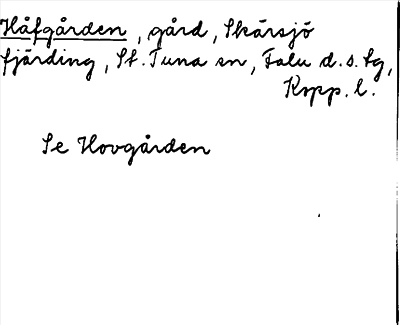 Håfgården, gård, Skärsjö
fjärding, St. Tuna sn, Falu d.s. tg,
Kopp. l.
Se Hovgården